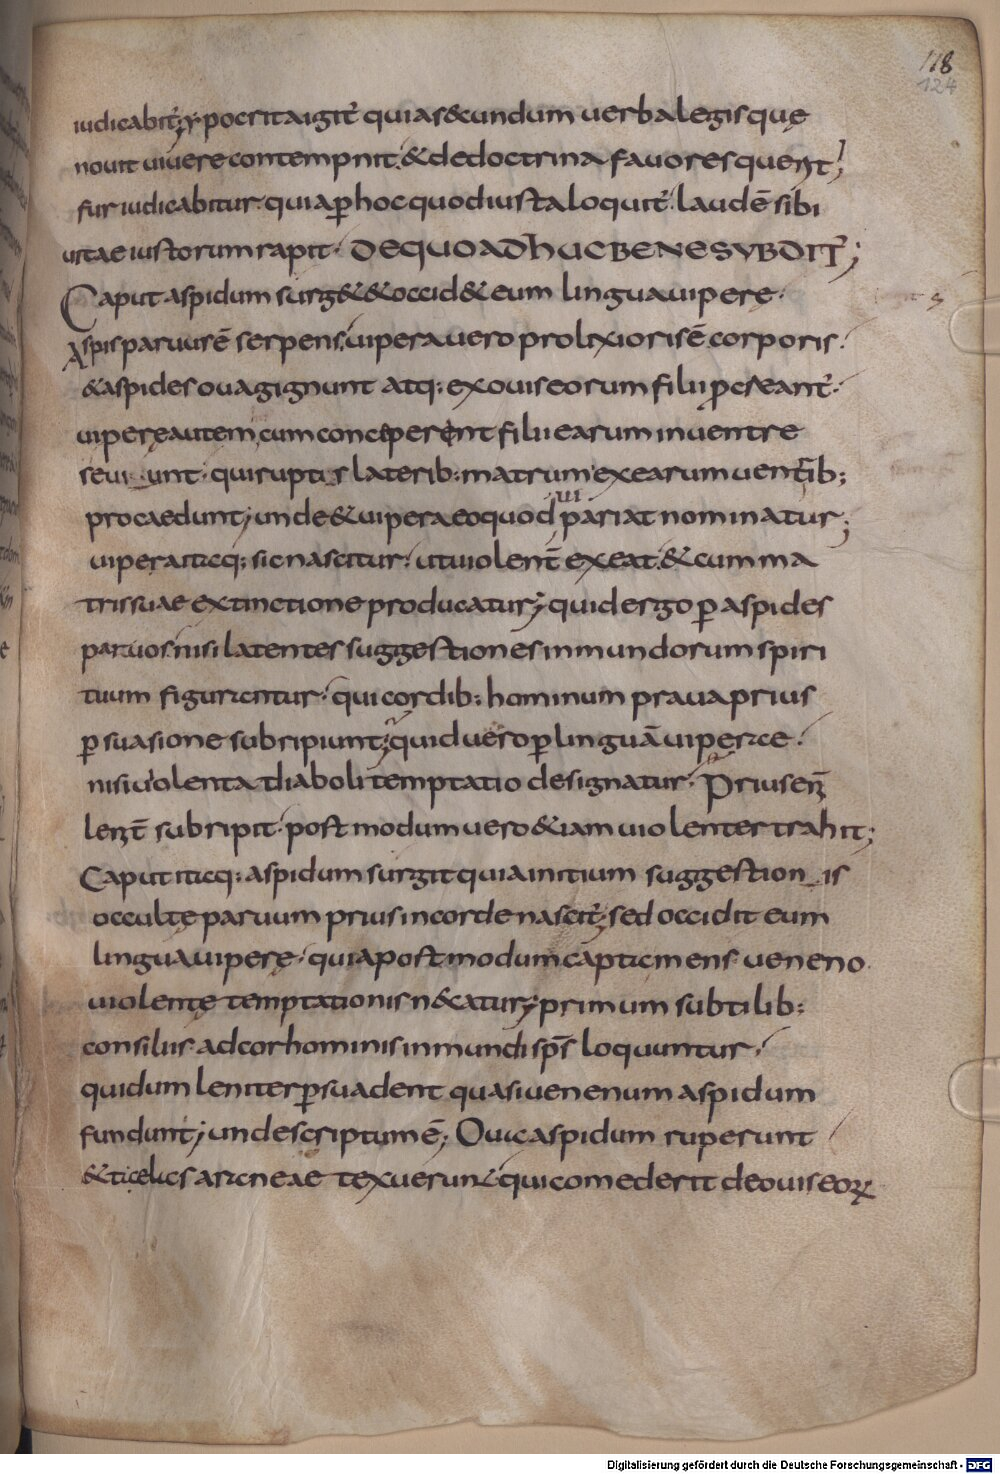 118
124
iudicabit̄; ypocrita igit̄ quia s&cundum uerba legis quę
nouit uiuere contempnit. & de doctrina fauores quer&nt;
fur iudicabitur. quia ꝑ hoc quod iusta loquit̄. laudē sibi
uitae iustorum rapit. DE QUO ADHUC BENE SVBDIT̄;
Caput aspidum surg& & occid& eum lingua uiperę.
Aspis paruus ē serpens. uipera uero prolixioris ē corporis.
& aspides oua gignunt atq: ex ouis eorum filii ꝓcreant̄.
uiperę autem cum conceperent filii earum in uentre
seuiunt. qui ruptis laterib: matrum ex earum uentrib;
procaedunt; unde & uipera eo quod ui pariat nominatur;
uipera itaq: sic nascitur. ut uiolent̄ exeat. & cum ma
tris suae extinctione producatur; quid ergo ꝑ aspides
paruos nisi latentes suggestiones inmundorum spiri
tuum figurantur. qui cordib: hominum praua prius
ꝑsuasione subripiunt; quid uero ꝑ linguā uiperae.
nisi uiolenta diaboli temptatio designatur. Prius en̄
lent̄ subripit. postmodum uero &iam uiolenter trahit;
Caput itaq: aspidum surgit quia initium suggestionis
occulte paruum prius in corde nascit̄; sed occidit eum
lingua uiperę. quia postmodum capta mens ueneno
uiolentę temptationis n&catur; primum subtilib:
consiliis ad cor hominis inmundi sp̄s loquuntur.
qui dum leniter ꝑsuadent quasi uenenum aspidum
fundunt; unde scriptum ē; Oua aspidum ruperunt
& telas araneae texuerunt. qui comederit de ouis eoꝝ
Digitalisierung gefördert durch die Deutsche Forschungsgemeinschaft - DFG